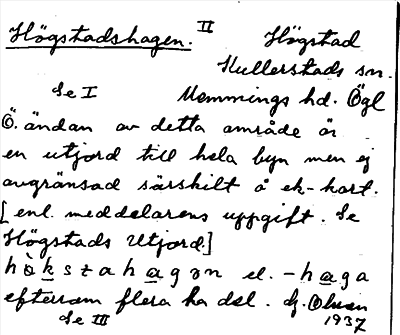 Högstadshagen. II Högstad
Kullerstads sn.
Se I Memmings hd. Ögl
Ö. ändan av detta område är
en utjord till hela byn men ej
avgränsad särskilt å ek-kart.
[enl. meddelarens uppgift. Se
Högstads Utjord.]
hò̤kstahagən el. -haga
eftersom flera ha del. G. Ohlson
Se III 1937